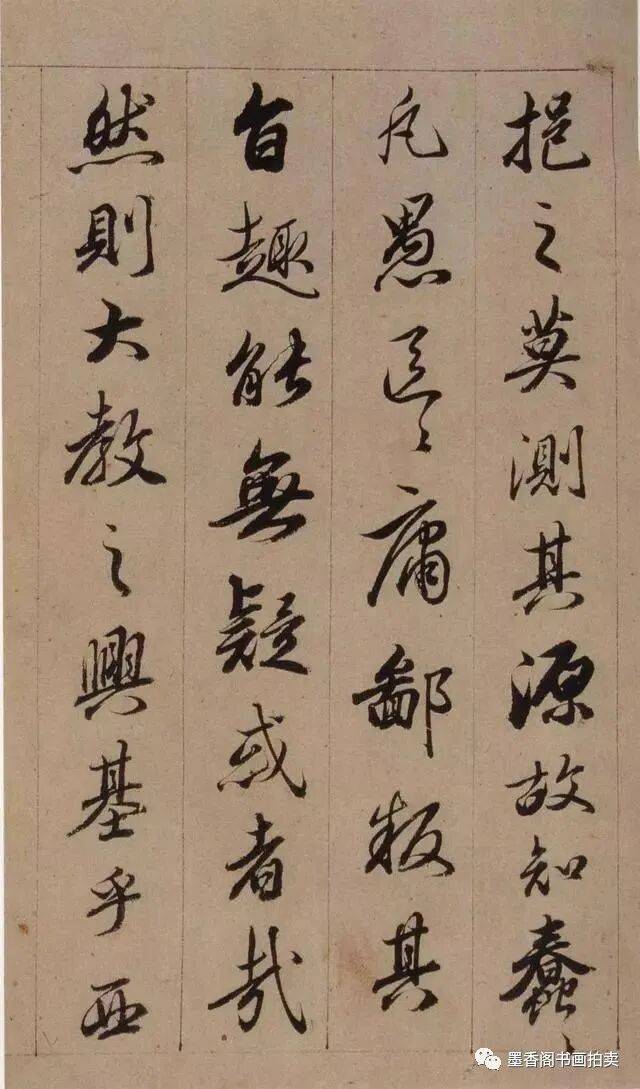 挹之莫測其源故知蠢〻
凡愚區〻庸鄙投其
旨趣能無疑惑者哉
然則大教之興基乎西
墨香阁书画拍卖